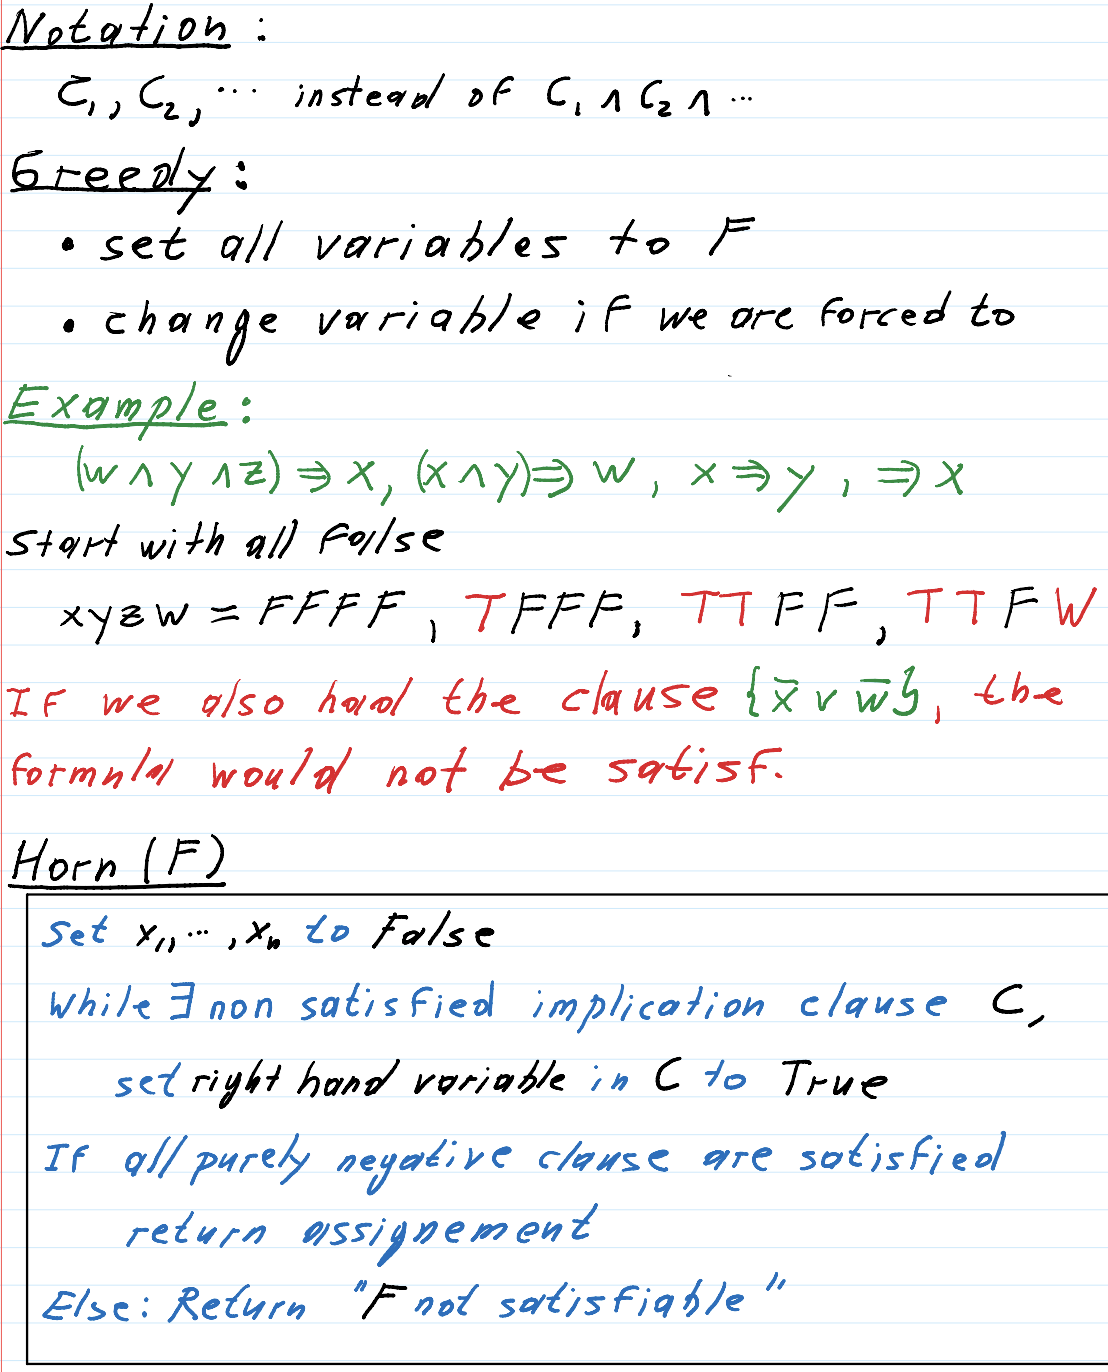 Notation :
C₁, C₂, ... instead of C₁ ∧ C₂ ∧ ...
Greedy :
• set all variables to F
• change variable if we are forced to
Example :
(w ∧ y ∧ z) ⇒ x, (x ∧ y) ⇒ w, x ⇒ y, ⇒ x
Start with all False
xyzw = FFFF, TFFF, TTFF, TTFW
If we also had the clause {x̄ ∨ w̄}, the
formula would not be satisf.
Horn (F)
Set x₁, ..., xₙ to False
While ∃ non satisfied implication clause C,
set right hand variable in C to True
If all purely negative clause are satisfied
return assignement
Else: Return "F not satisfiable"